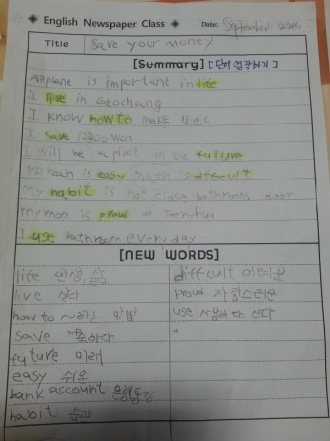 ◈ English Newspaper Class ◈ Date: September
Title Save your money
[Summary] [단어 연장하기]
is important in life
I live in Geochang
I know how to make
I save 12300 won
I will be a pilot in the future
is easy math is difficult
my habit is not close bathroom door
my mom is proud
I use bathroom every day
[NEW WORDS]
life 인생, 삶
live 살다
how to ~하는 방법
save 저축하다
future 미래
easy 쉬운
bank account 은행통장
habit 습관
difficult 어려운
proud 자랑스러운
use 사용하다, 쓴다